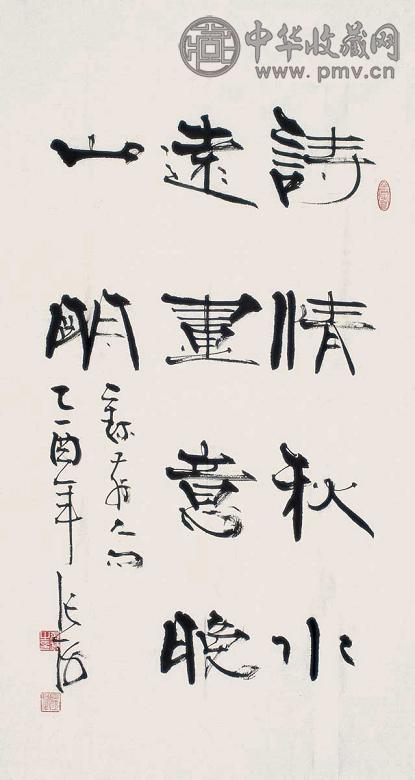 中华收藏网
www.pmv.cn
詩情秋水
遠畫意晚
山明
乙酉年 张海